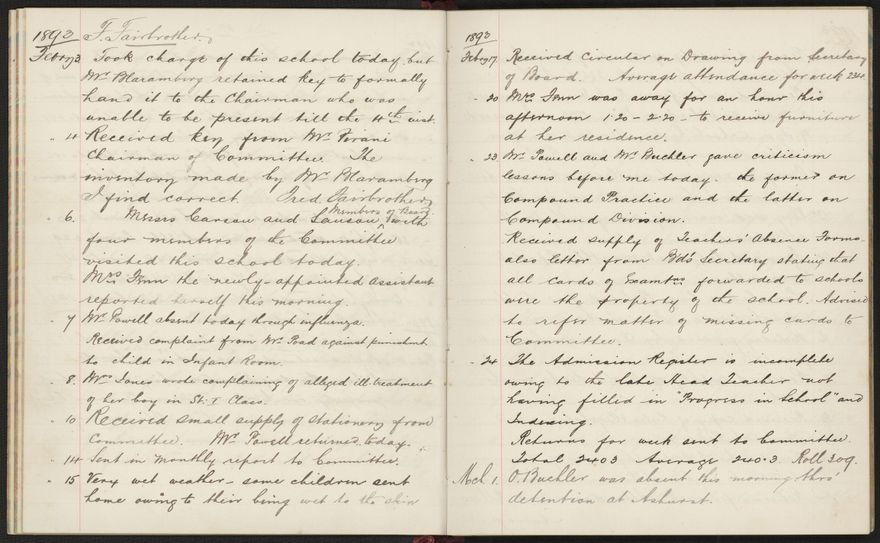 1893 F. Fairbrother.
Febry 3 Took charge of this school today, but
Mr. Blaramberg retained key to formally
hand it to the Chairman who was
unable to be present till the 4th inst.
" 4 Received key from Mr. Ferani
Chairman of Committee. The
inventory made by Mr. Blaramberg
I find correct. Fred Fairbrother
" 6. Messrs Carson and Lawson, Members of Board, with
four members of the Committee
visited this school today.
Mrs. Fenn the newly-appointed Assistant
reported herself this morning.
" 7 Mr. Powell absent today through influenza.
Received complaint from Mr. Poad against punishment
to child in Infant Room.
" 8. Mrs. Jones wrote complaining of alleged ill treatment
of her boy in St. I Class.
" 10 Received small supply of stationery from
Committee. Mr. Powell returned today.
" 14 Sent in monthly report to Committee.
" 15 Very wet weather - some children sent
home owing to their being wet to the skin
1893
Febry 17 Received Circular on Drawing from Secretary
of Board. Average attendance for week 234.
" 20 Mrs. Fenn was away for an hour this
afternoon 1.20 - 2.20 - to receive furniture
at her residence.
" 23 Mr. Powell and Mr. Buchler gave criticism
lessons before me today. the former on
Compound Practice and the latter on
Compound Division.
Received supply of Teachers' Absence Forms
also letter from Bd's Secretary stating that
all cards of Examtns forwarded to schools
were the property of the school. Advised
to refer matter of missing cards to
Committee.
" 24 The Admission Register is incomplete
owing to the late Head Teacher not
having filled in "Progress in School" and
Indexing.
Returns for week sent to Committee.
Total 2403 Average 240.3 Roll 309.
Mch 1. O. Buchler was absent this morning thro'
detention at Ashurst.